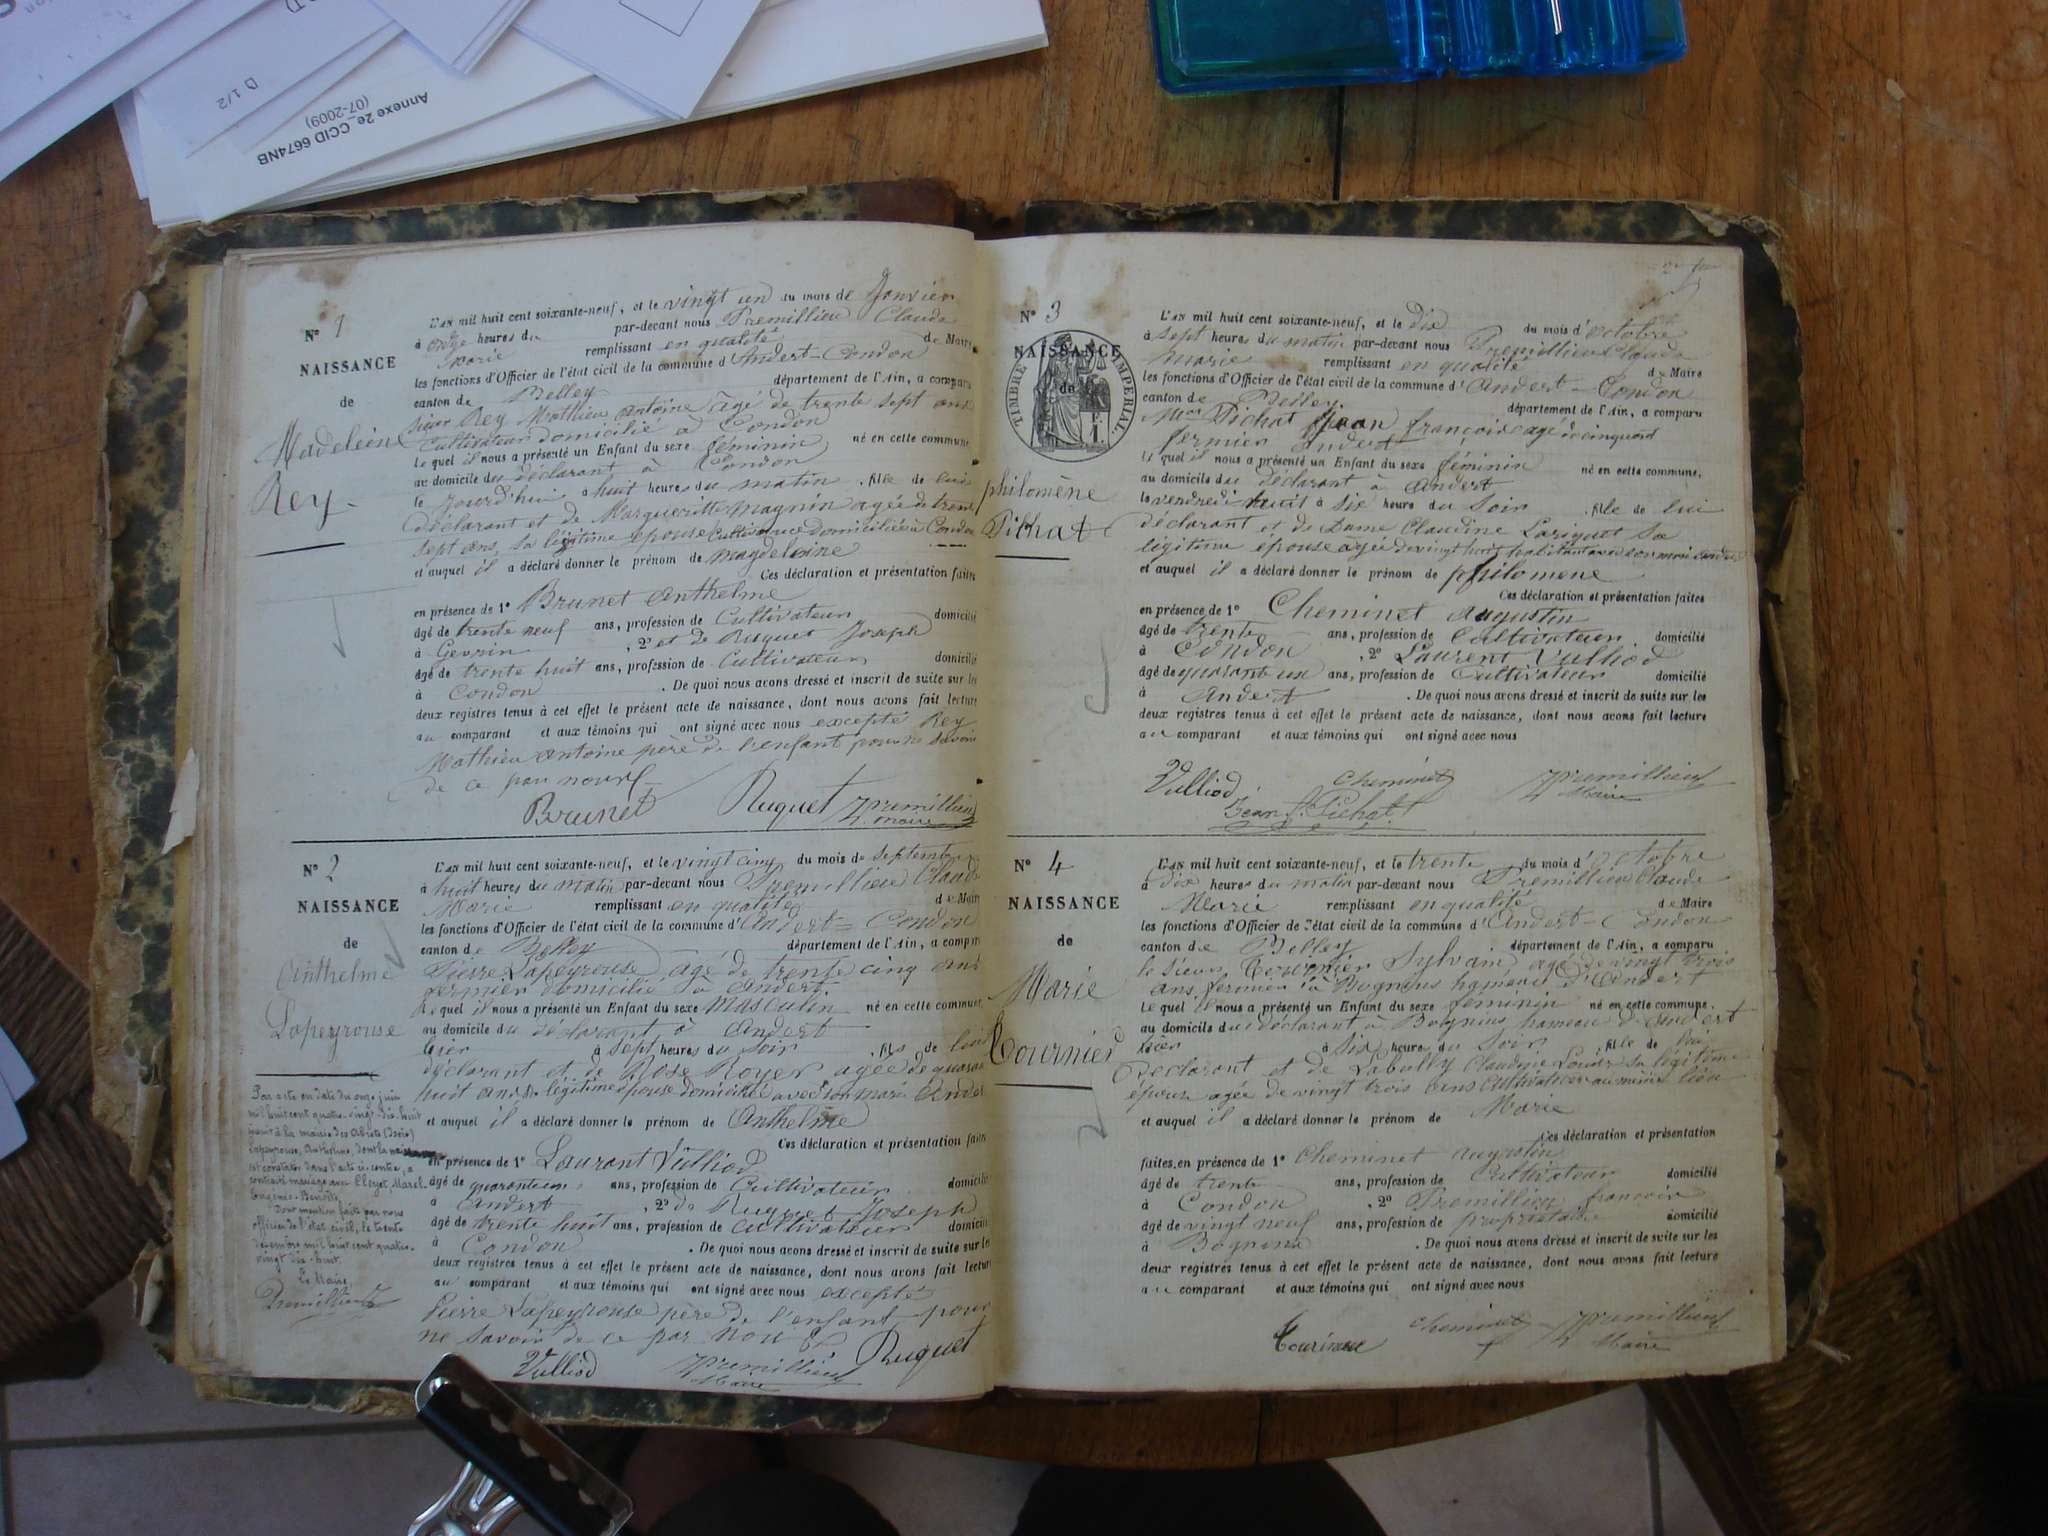 D 1/2
Annexe 2e_CCID 6674NB
(07-2009)
N° 1
NAISSANCE
de
Madeleine
Rey
L'an mil huit cent soixante-neuf, et le vingt un du mois de Janvier
à onze heures du par-devant nous Premillieu Claude
Marie remplissant en qualité de Maire
les fonctions d'Officier de l'état civil de la commune d'Andert-Condon
canton de Belley département de l'Ain, a comparu
sieur Rey Mathieu Antoine âgé de trente sept ans
Cultivateur domicilié à Condon
le quel il nous a présenté un Enfant du sexe féminin né en cette commune
au domicile du déclarant à Condon
le jourd'hui à huit heures du matin, fille de lui
déclarant et de Margueritte Magnin agée de trente
sept ans, sa légitime épouse Cultivatrice Domiciliée à Condon
et auquel il a déclaré donner le prénom de Magdeleine
Ces déclaration et présentation faites
en présence de 1° Brunet Anthelme
âgé de trente neuf ans, profession de Cultivateur domicilié
à Gevrin, 2° et de Ruguet Joseph
âgé de trente huit ans, profession de Cultivateur domicilié
à Condon. De quoi nous avons dressé et inscrit de suite sur les
deux registres tenus à cet effet le présent acte de naissance, dont nous avons fait lecture
au comparant et aux témoins qui ont signé avec nous excepté Rey
Mathieu Antoine père de l'enfant pour ne savoir
de ce par nous
Brunet Ruguet Premillieu
maire
N° 2
NAISSANCE
de
Anthelme
Lapeyrouse
Par acte en date du onze juin
mil huit cent quatre-vingt-dix-huit
passé à la mairie des Abrets (Isère)
Lapeyrouse, Anthelme, dont la naissance
est constatée dans l'acte ci-contre, a
contracté mariage avec Cleyet, Marel
Eugénie-Benoîte
Dont mention faite par nous
officier de l'état civil, le trente
décembre mil huit cent quatre-
vingt dix-huit.
Le Maire,
Premillieu
L'an mil huit cent soixante-neuf, et le vingt cinq du mois de Septembre
à huit heures du matin par-devant nous Premillieu Claude
Marie remplissant en qualité de Maire
les fonctions d'Officier de l'état civil de la commune d'Andert=Condon
canton de Belley département de l'Ain, a comparu
Pierre Lapeyrouse agé de trente cinq ans
fermier domicilié à Andert
le quel il nous a présenté un Enfant du sexe masculin né en cette commune
au domicile du déclarant à Andert
hier à sept heures du soir, fils de lui
déclarant et de Rose Royer agée de quarante
huit ans sa légitime épouse domiciliée avec son mari Andert
et auquel il a déclaré donner le prénom de Anthelme
Ces déclaration et présentation faites
en présence de 1° Laurant Vulliod
âgé de quarante un ans, profession de Cultivateur domicilié
à Andert, 2° de Ruguet Joseph
âgé de trente huit ans, profession de cultivateur domicilié
à Condon. De quoi nous avons dressé et inscrit de suite sur les
deux registres tenus à cet effet le présent acte de naissance, dont nous avons fait lecture
au comparant et aux témoins qui ont signé avec nous excepté
Pierre Lapeyrouse père de l'enfant pour
ne savoir de ce par nou
Vulliod Premillieu Ruguet
Maire
N° 3
NAISSANCE
de
TIMBRE IMPERIAL
1 F
philomène
Pichat
L'an mil huit cent soixante-neuf, et le dix du mois d'octobre
à sept heures du matin par-devant nous Premillieu Claude
Marie remplissant en qualité de Maire
les fonctions d'Officier de l'état civil de la commune d'Andert-Condon
canton de Belley département de l'Ain, a comparu
Pichat Jean françois agé
fermier Andert
le quel il nous a présenté un Enfant du sexe féminin né en cette commune,
au domicile du déclarant à Andert
le vendredi huit à six heures du soir, fille de lui
déclarant et de Dame Claudine Lariguet Sa
légitime épouse âgée de vingt huit habitant avec son mari
et auquel il a déclaré donner le prénom de philomene
Ces déclaration et présentation faites
en présence de 1° Cheminet Augustin
âgé de trente ans, profession de Cultivateur domicilié
à Condon, 2° Laurent Vulliod
âgé de quarante un ans, profession de Cultivateur domicilié
à Andert. De quoi nous avons dressé et inscrit de suite sur les
deux registres tenus à cet effet le présent acte de naissance, dont nous avons fait lecture
au comparant et aux témoins qui ont signé avec nous
Vulliod Cheminet Premillieu
Jean f. Pichat Maire
N° 4
NAISSANCE
de
Marie
Tournier
L'an mil huit cent soixante-neuf, et le trente du mois d'Octobre
à dix heures du matin par-devant nous Premillieu Claude
Marie remplissant en qualité de Maire
les fonctions d'Officier de l'état civil de la commune d'Andert-Condon
canton de Belley département de l'Ain, a comparu
le sieur Tournier Sylvain agé de vingt trois
ans fermier à Bognins hameau d'Andert
le quel il nous a présenté un Enfant du sexe féminin né en cette commune,
au domicile du déclarant à Bognins hameau d'Andert
hier à six heures du soir, fille de lui
Déclarant et de Labully Claudine Louise sa légitime
épouse agée de vingt trois ans cultivatrice au même lieu
et auquel il a déclaré donner le prénom de Marie
Ces déclaration et présentation
faites, en présence de 1° Cheminet Augustin
âgé de trente ans, profession de Cultivateur domicilié
à Condon, 2° Premillieu françois
âgé de vingt neuf ans, profession de propriétaire domicilié
à Bognins. De quoi nous avons dressé et inscrit de suite sur les
deux registres tenus à cet effet le présent acte de naissance, dont nous avons fait lecture
au comparant et aux témoins qui ont signé avec nous
cheminet Premillieu
Maire